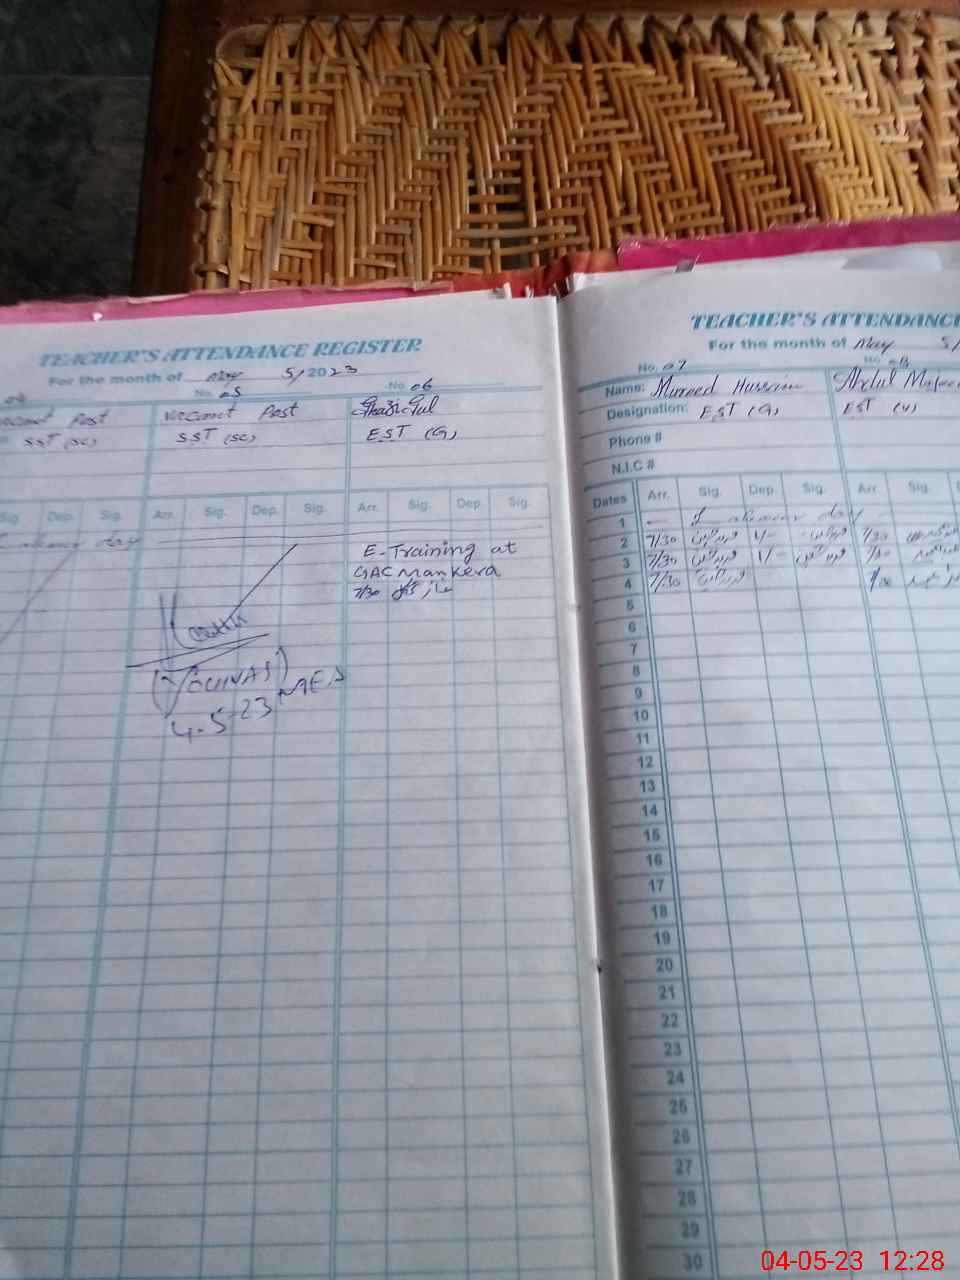 TEACHER'S ATTENDANCE REGISTER
For the month of May 5/2023
04 No. 05 No. 06
Vaccant Post Vaccant Post Ghazi Gul
SST (SC) SST (SC) EST (G)
Sig. Dep. Sig. Arr. Sig. Dep. Sig. Arr. Sig. Dep. Sig.
day
E-Training at
GAC Mankera
7/30
4-5-23 MEA
TEACHER'S ATTENDANC
For the month of May 5/
No. 07 No. 08
Name: Mureed Hussain Abdul Majeed
Designation: EST (G) EST (V)
Phone #
N.I.C #
Dates Arr. Sig. Dep. Sig. Arr. Sig.
1 day
2 7/30 1/- 7/30
3 7/30 1/- 7/30
4 7/30 7/30
5
6
7
8
9
10
11
12
13
14
15
16
17
18
19
20
21
22
23
24
25
26
27
28
29
30
04-05-23 12:28